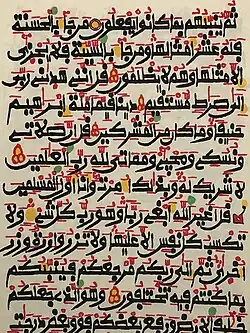 ثم ينبئهم بما كانوا يفعلون من جاء بالحسنة
فله عشر أمثالها ومن جاء بالسيئة فلا يجزى
إلا مثلها وهم لا يظلمون قل إنني هدىني ربي
إلى صرط مستقيم دينا قيما ملة إبرهيم
حنيفا وما كان من المشركين قل إن صلاتي
ونسكي ومحياي ومماتي لله رب العلمين
لا شريك له وبذلك أمرت وأنا أول المسلمين
قل أغير الله أبغي ربا وهو رب كل شيء ولا
تكسب كل نفس إلا عليها ولا تزر وازرة وزر
أخرى ثم إلى ربكم مرجعكم فينبئكم
بما كنتم فيه تختلفون وهو الذي جعلكم
خلئف الأرض ورفع بعضكم فوق بعض درجت